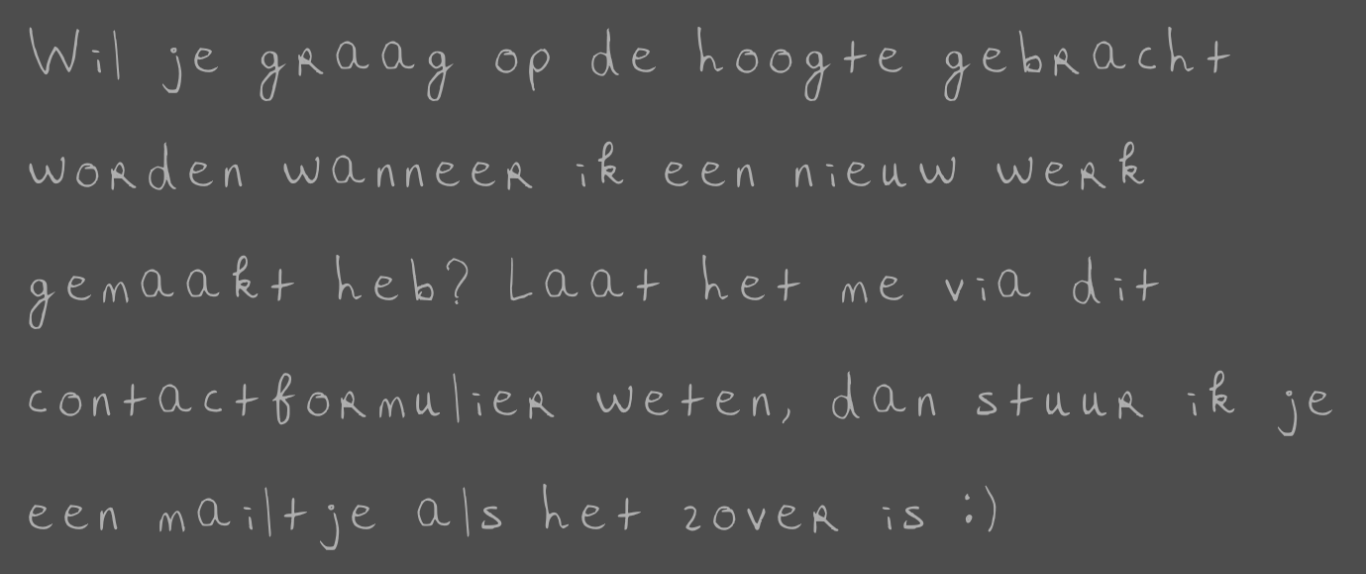 Wil je graag op de hoogte gebracht
worden wanneer ik een nieuw werk
gemaakt heb? Laat het me via dit
contactformulier weten, dan stuur ik je
een mailtje als het zover is :)